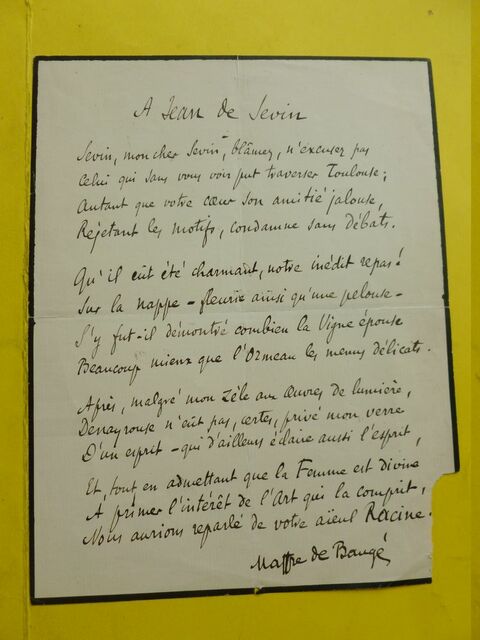 A Jean de Sevin
Sevin, mon cher Sevin, blâmez, n'excusez pas
Celui qui sans vous voir put traverser Toulouse ;
Autant que votre cœur son amitié jalouse,
Rejetant les motifs, condamne sans débats.
Qu'il eût été charmant, notre inédit repas !
Sur la nappe - fleurie ainsi qu'une pelouse -
S'y fut-il démontré combien la Vigne épouse
Beaucoup mieux que l'Ormeau les menus délicats.
Après, malgré mon zèle aux Œuvres de lumière,
Denayrouse n'eût pas, certes, privé mon verre
D'un esprit - qui d'ailleurs éclaire aussi l'esprit,
Et, tout en admettant que la Femme est divine
A primer l'intérêt de l'Art qui la comprit,
Nous aurions reparlé de votre aïeul Racine.
Maffre de Baugé